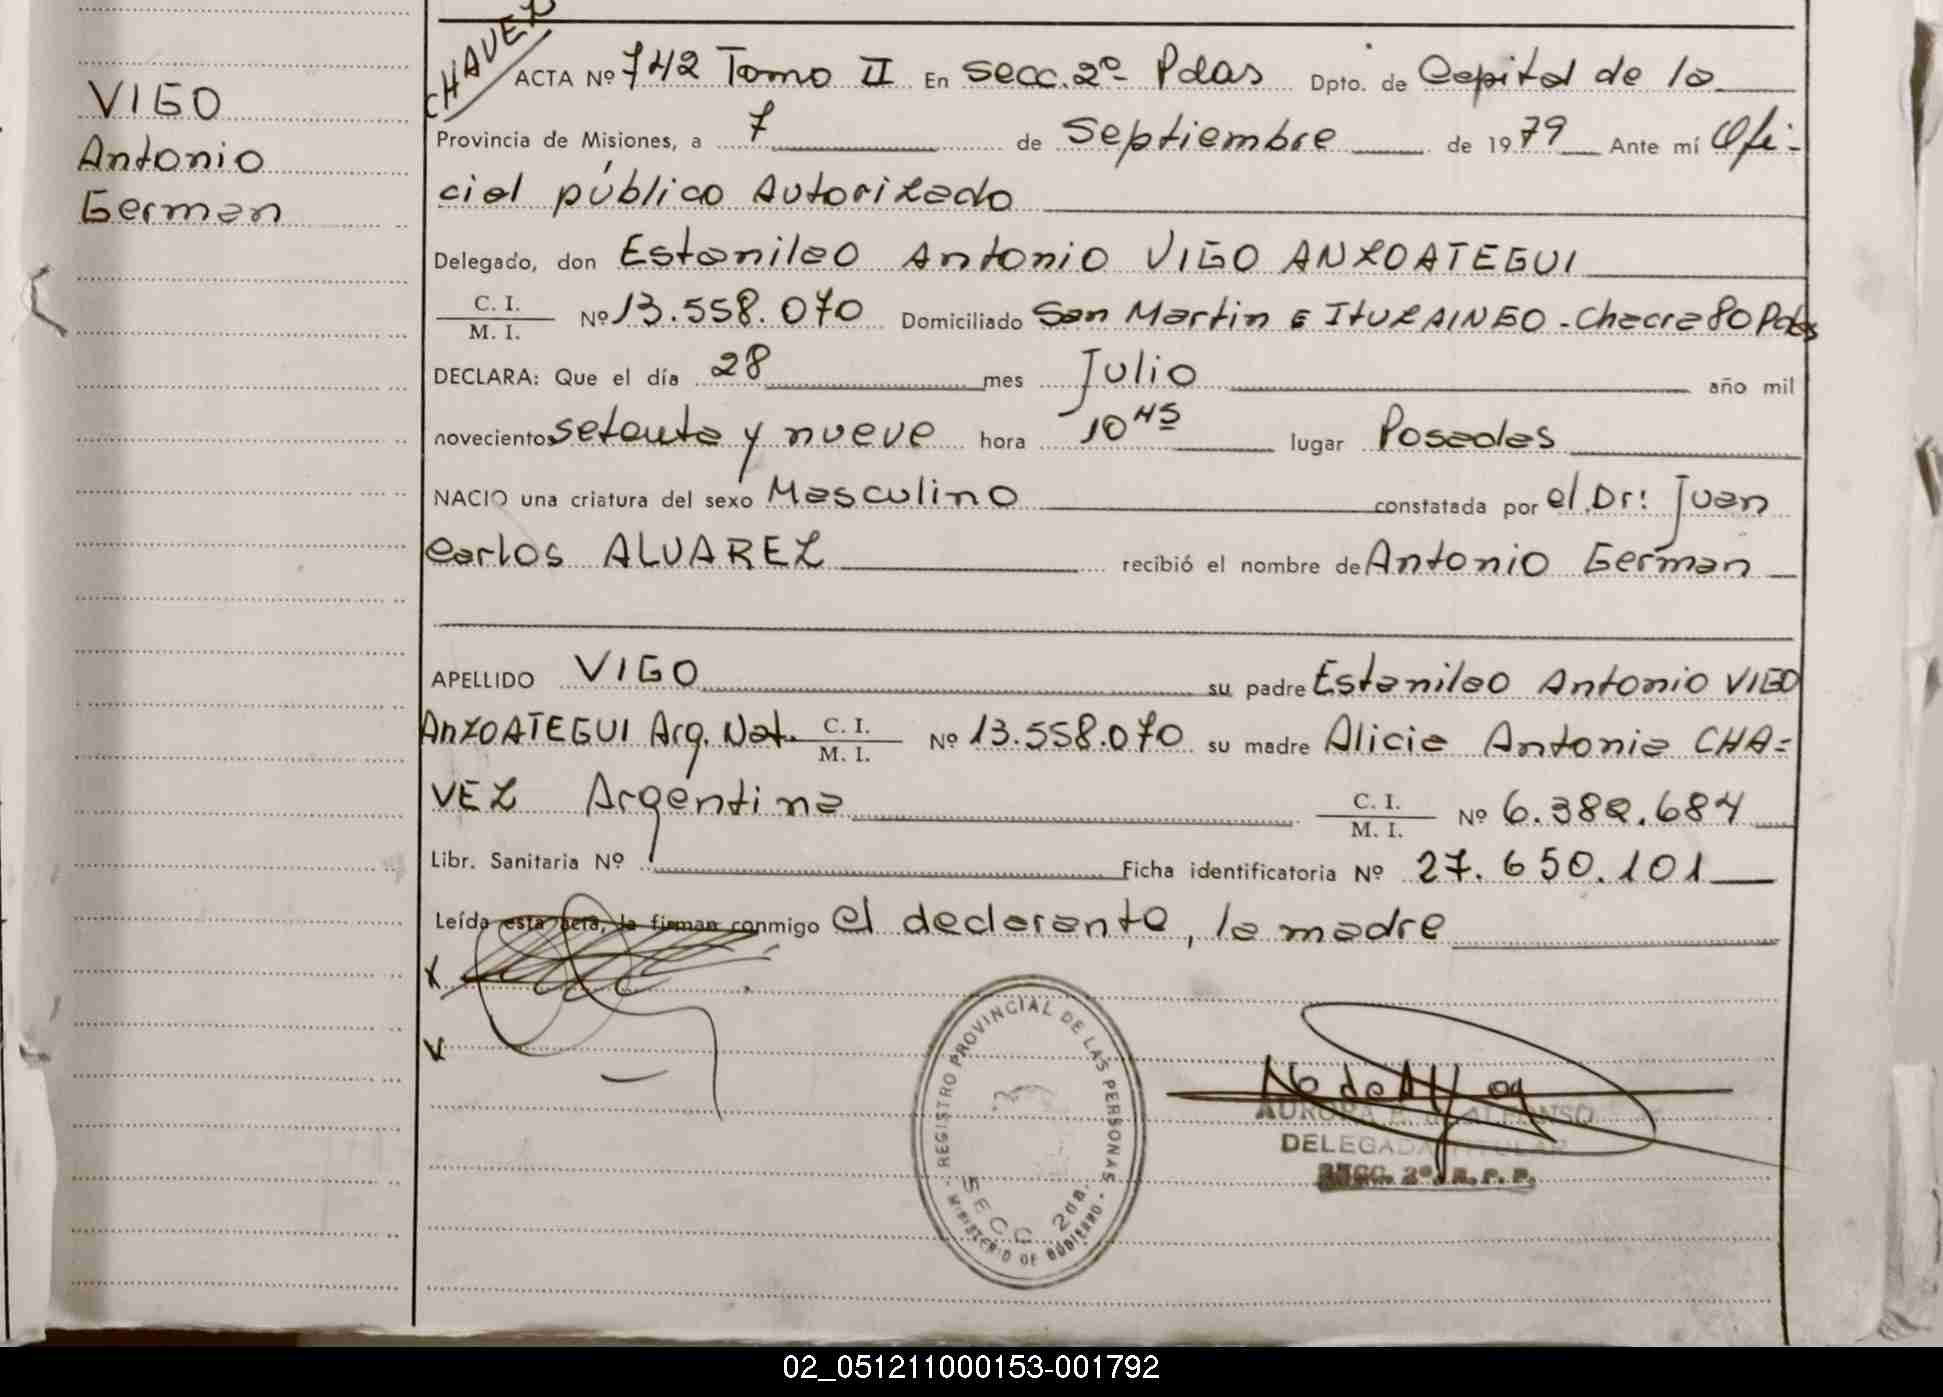 CHAVEZ
VIGO
Antonio
German
ACTA Nº 742 Tomo II En secc. 2º- Pdas Dpto. de Capital de la
Provincia de Misiones, a 7 de Septiembre de 1979 Ante mí Ofi-
cial público Autorizado
Delegado, don Estanilao Antonio VIGO ANZOATEGUI
C. I. / M. I. Nº 13.558.070 Domiciliado San Martin e ITUZAINGO - Chacra 80 Pdas
DECLARA: Que el día 28 mes Julio año mil
novecientos setenta y nueve hora 10 45 lugar Posadas
NACIO una criatura del sexo Masculino constatada por el Dr: Juan
Carlos ALVAREZ recibió el nombre de Antonio German
APELLIDO VIGO su padre Estanilao Antonio VIGO
ANZOATEGUI Arg. Nat. C. I. / M. I. Nº 13.558.070 su madre Alicia Antonia CHA=
VEZ Argentina C. I. / M. I. Nº 6.382.684
Libr. Sanitaria Nº Ficha identificatoria Nº 27.650.101
Leída esta acta, la firman conmigo el declarante, la madre
X
V
REGISTRO PROVINCIAL DE LAS PERSONAS
SECC 2da.
- MINISTERIO DE GOBIERNO -
AURORA ALFONSO
DELEGADA TITULAR
SECC. 2º R. P. P.
02_051211000153-001792